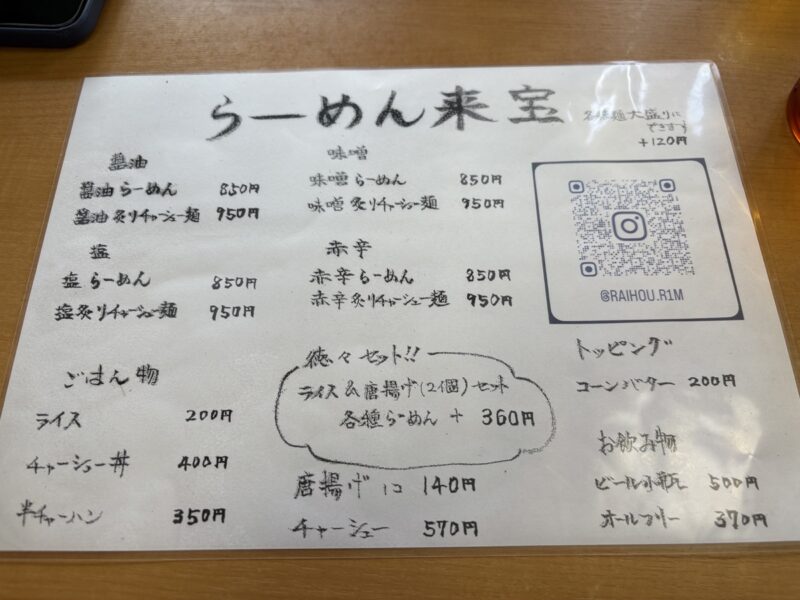 らーめん 来宝
各種麺大盛りに
できます
+120円
醤油
醤油らーめん 850円
醤油炙りチャーシュー麺 950円
味噌
味噌らーめん 850円
味噌炙りチャーシュー麺 950円
塩
塩らーめん 850円
塩炙りチャーシュー麺 950円
赤辛
赤辛らーめん 850円
赤辛炙りチャーシュー麺 950円
@RAIHOU.R1M
ごはん物
ライス 200円
チャーシュー丼 400円
半チャーハン 350円
徳々セット!!
ライス&唐揚げ(2個)セット
各種らーめん + 360円
唐揚げ 1コ 140円
チャーシュー 570円
トッピング
コーンバター 200円
お飲み物
ビール小瓶 500円
オールフリー 370円